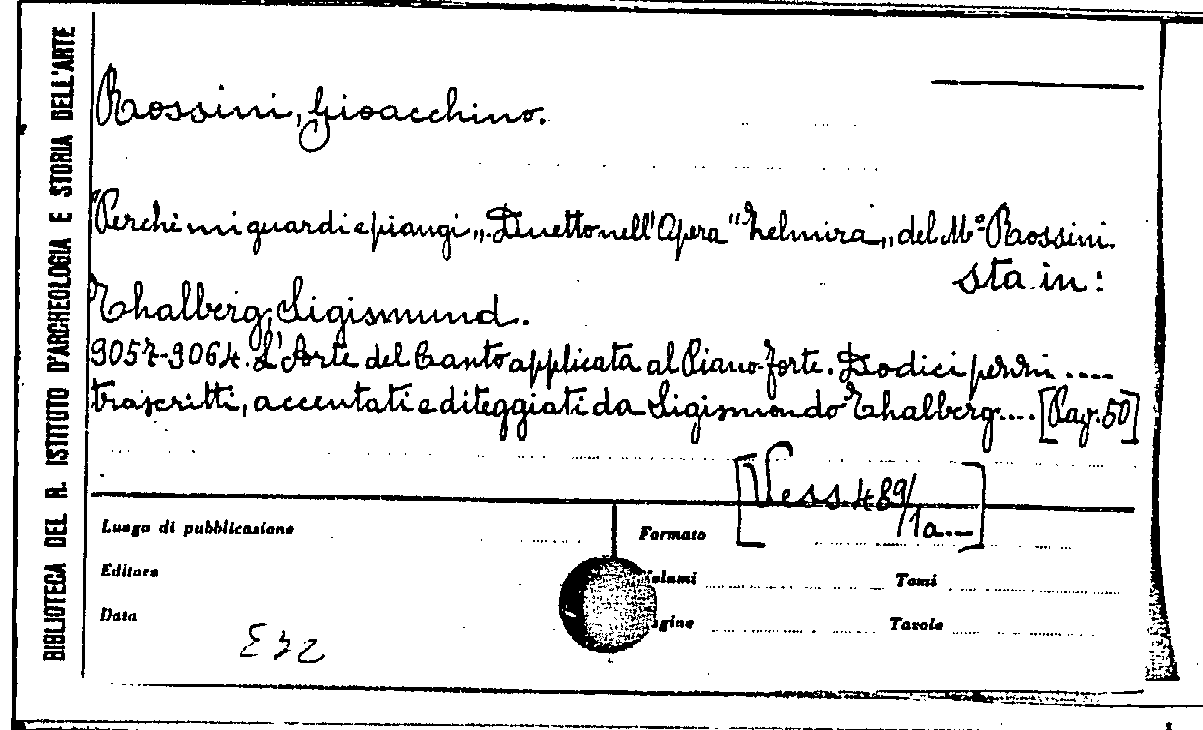 BIBLIOTECA DEL R. ISTITUTO D'ARCHEOLOGIA E STORIA DELL'ARTE
Rossini, Gioacchino.
"Perchi mi guardi e piangi„. Duetto nell'Opera "Zelmira„, del Mº Rossini.
sta in:
Thalberg, Sigismund.
9057-9064. L'Arte del Canto applicata al Piano-forte. Dodici pezzi ....
trascritti, accentati e diteggiati da Sigismondo Thalberg.... [Pag. 50]
[Vess. 489/1a...]
Luogo di pubblicazione
Formato
Editore
Volumi
Tomi
Data
Pagine
Tavole